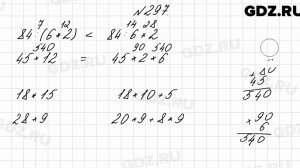 №297
GDZ.RU
7 12 14 28
84 · (6 * 2) < 84 · 6 * 2
540 90 540
45 * 12 = 45 * 2 * 6
45
540
18 * 15 18 * 10 + 5
28 * 9 20 * 9 + 8 * 9
* 90
6
540
GDZ.RU